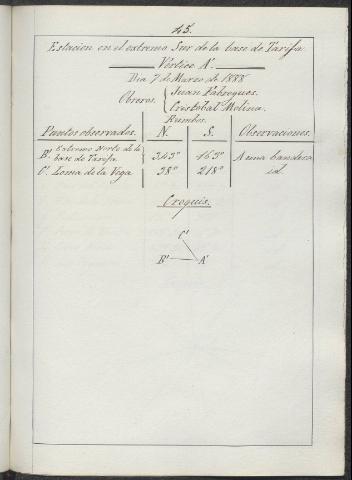 45.
Estacion en el extremo Sur de la base de Tarifa.
Vértice A'.
Dia 7 de Marzo de 1888
Obreros. Juan Fabregues.
Cristobal Molina.
Rumbos.
Puntos observados. N. S. Observaciones.
B'. Extremo Norte de la base de Tarifa 343º 163º A una bandera
C'. Loma de la Vega 38º 218º id.
Croquis.
C'
B' A'